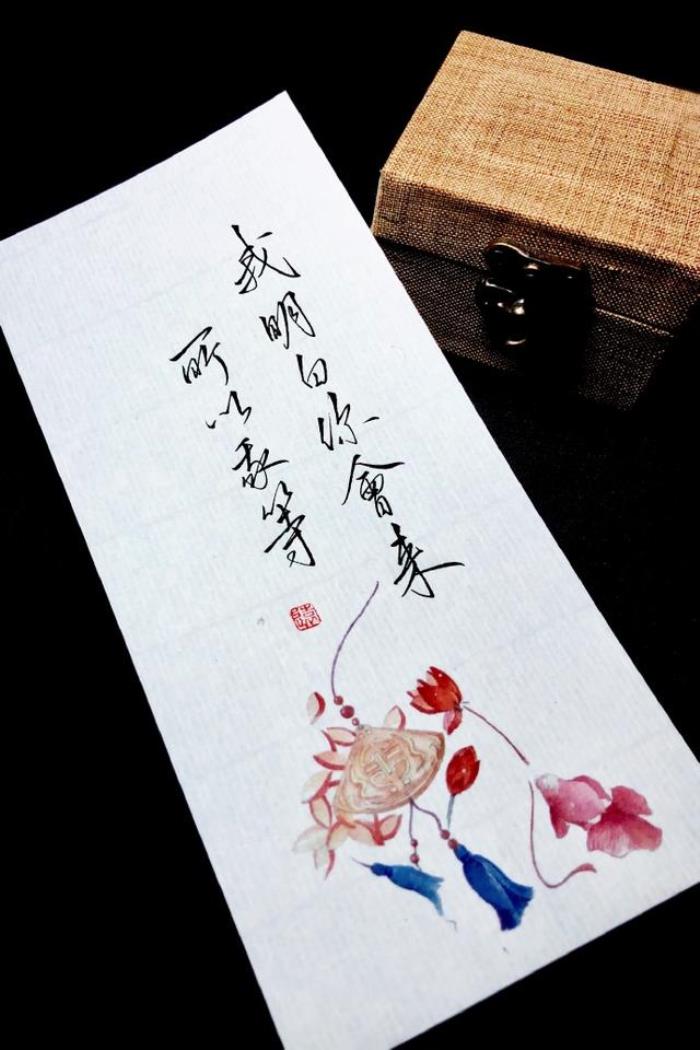 我明白你會来
所以我等